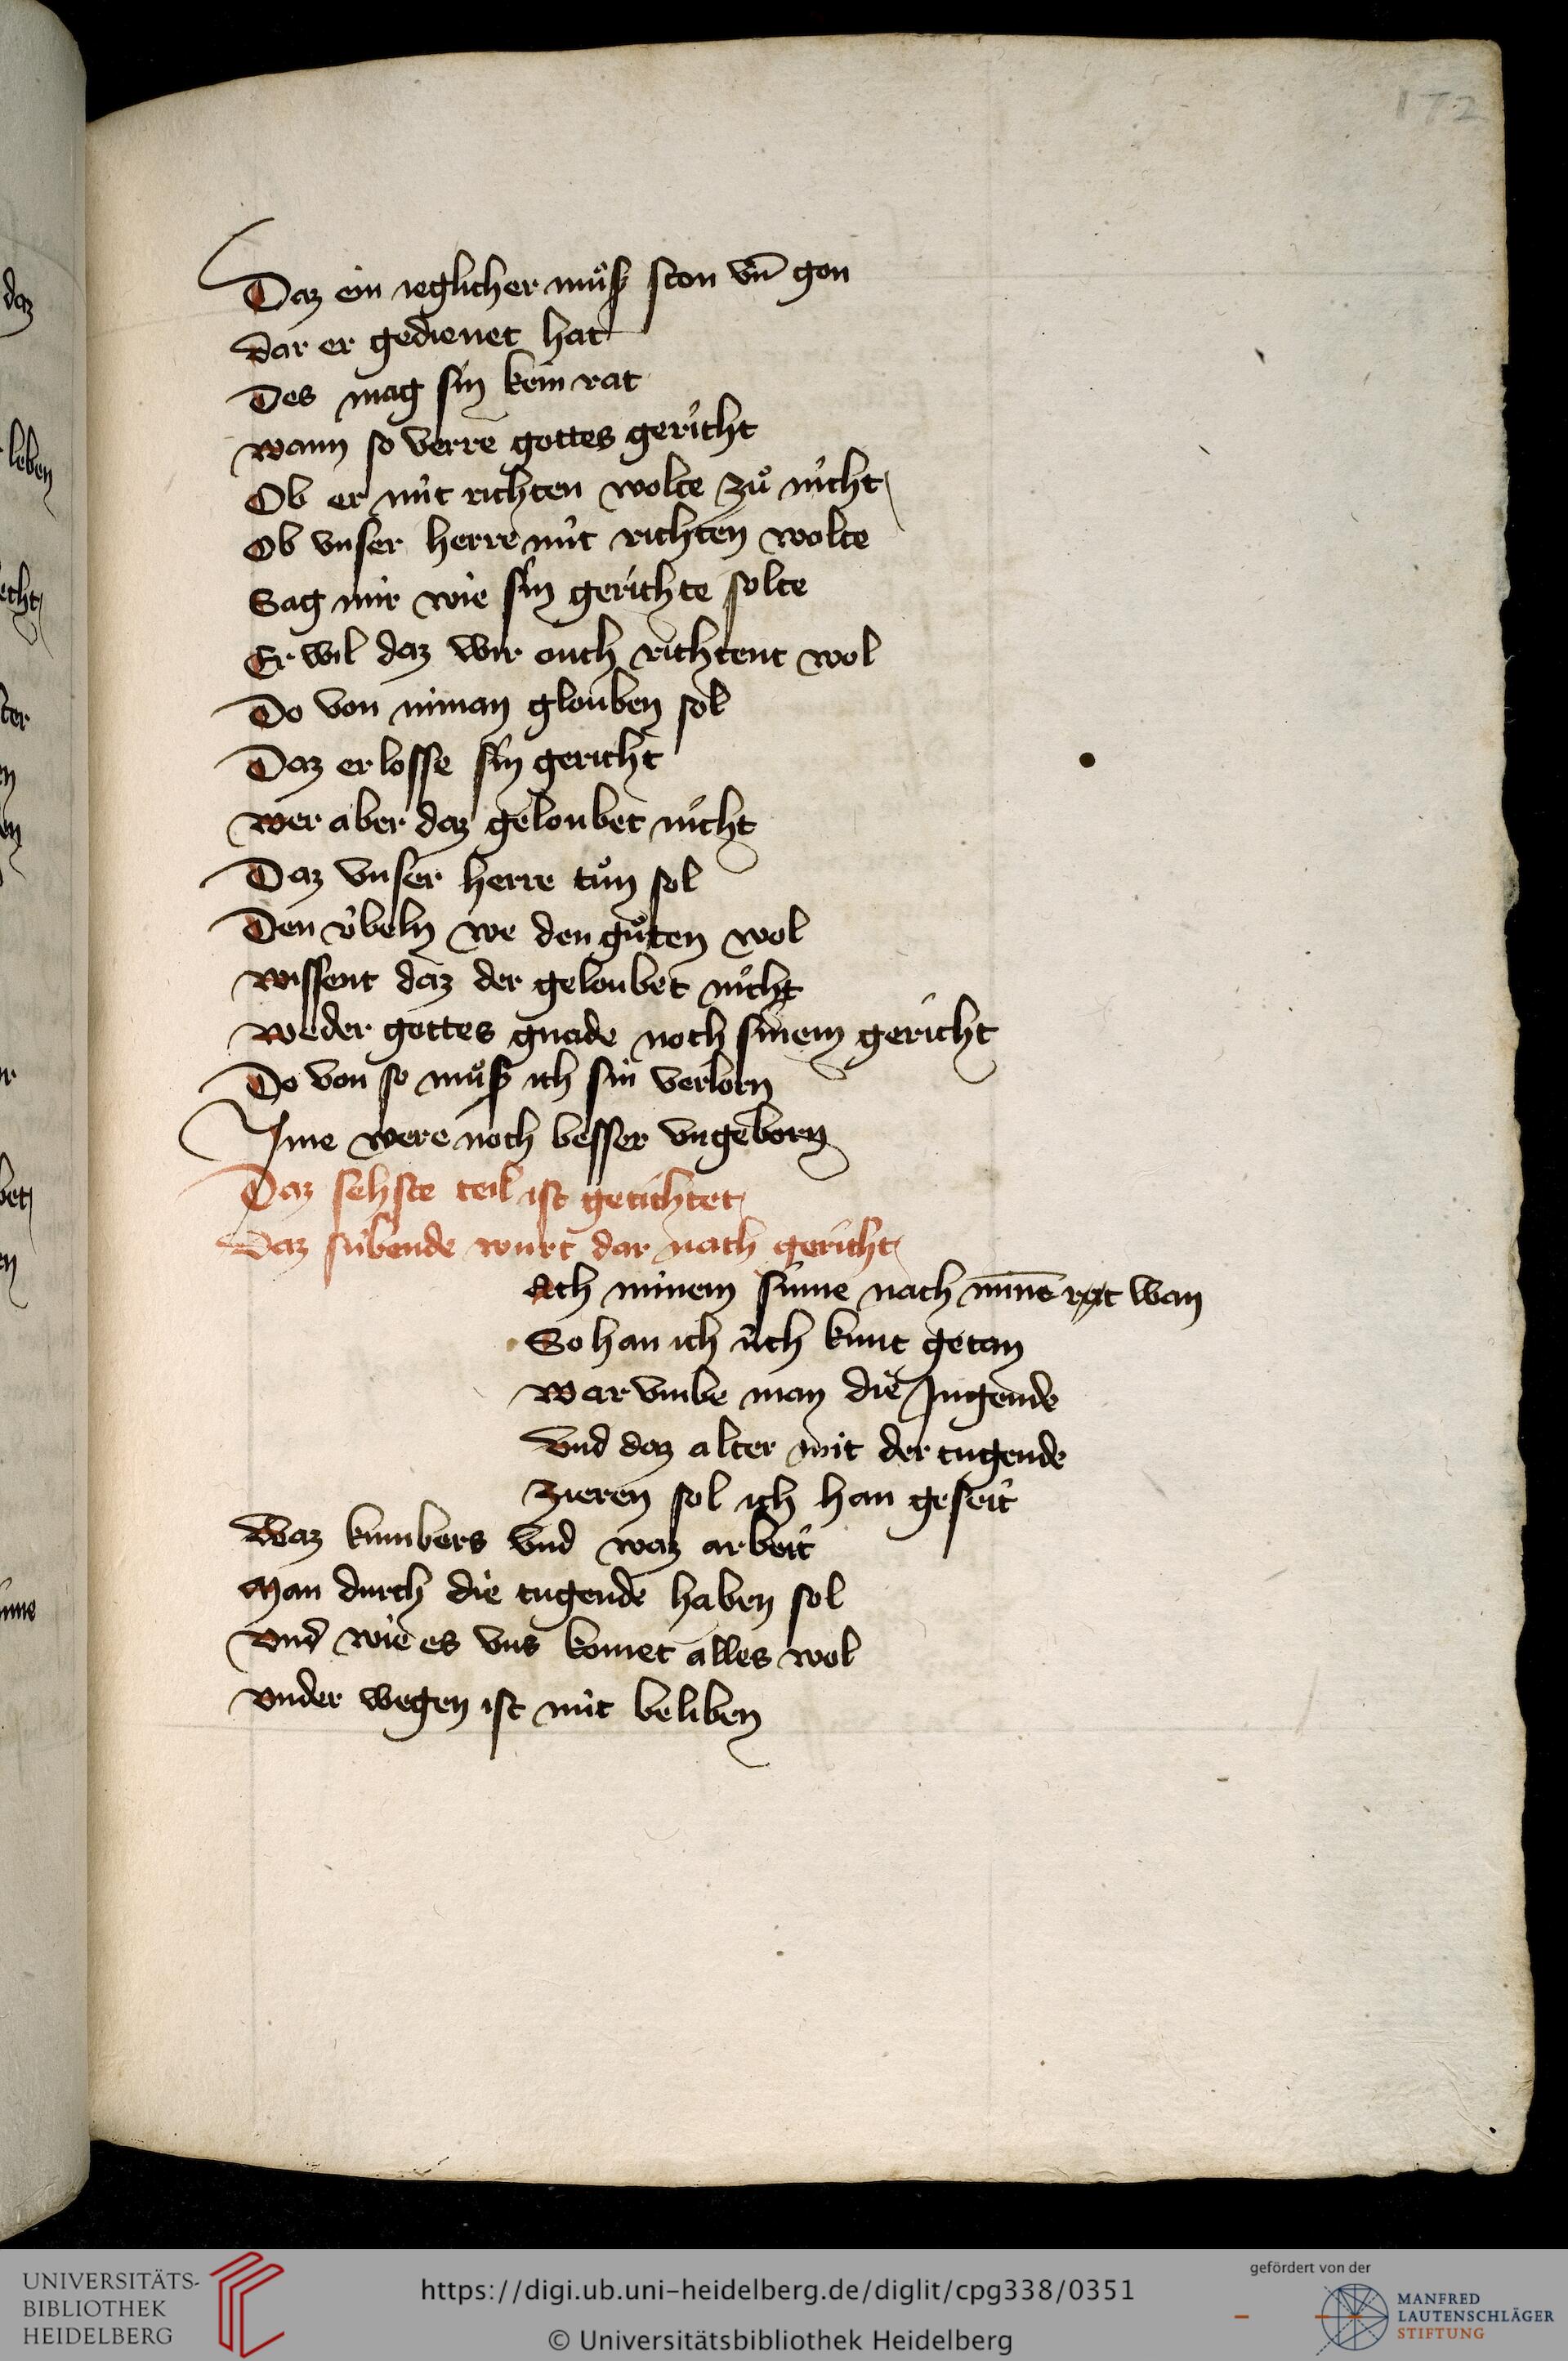 172
Daz ein ieglicher muͦß ston vn̄ gon
Dar er gedienet hat
Des mag sin kein rat
Wann so verre gottes gericht
Ob er nit richten wolte zuͦ nicht
Ob vnser herre nit richten wolte
Sag mir wie sin gerichte solte
Er wil daz wir ouch richtent wol
Do von niman glouben sol
Daz er losse sin gericht
Wer aber daz geloubet nicht
Daz vnser herre tuͦn sol
Den v́beln we den guͦten wol
Wissent daz der geloubet nicht
Weder gottes gnade noch sinem gericht
Do von so muͦß ich sin verlorn
Ime were noch besser vngeborn
Daz sehste teil ist getichtet
Daz súbende wurt dar nach gericht
Ach minem sinne nach mine rat wan
So han ich v́ch kunt getan
War vmbe man die Jugende
Vnd daz alter mit der tugende
Zieren sol ich han geseit
Waz kumbers vnd waz arbeit
Man durch die tugende haben sol
Vnd wie es vns komet alles wol
Vnder wegen ist nit beliben
daz
leben
UNIVERSITÄTS-
BIBLIOTHEK
HEIDELBERG
https://digi.ub.uni-heidelberg.de/diglit/cpg338/0351
© Universitätsbibliothek Heidelberg
gefördert von der
MANFRED
LAUTENSCHLÄGER
STIFTUNG